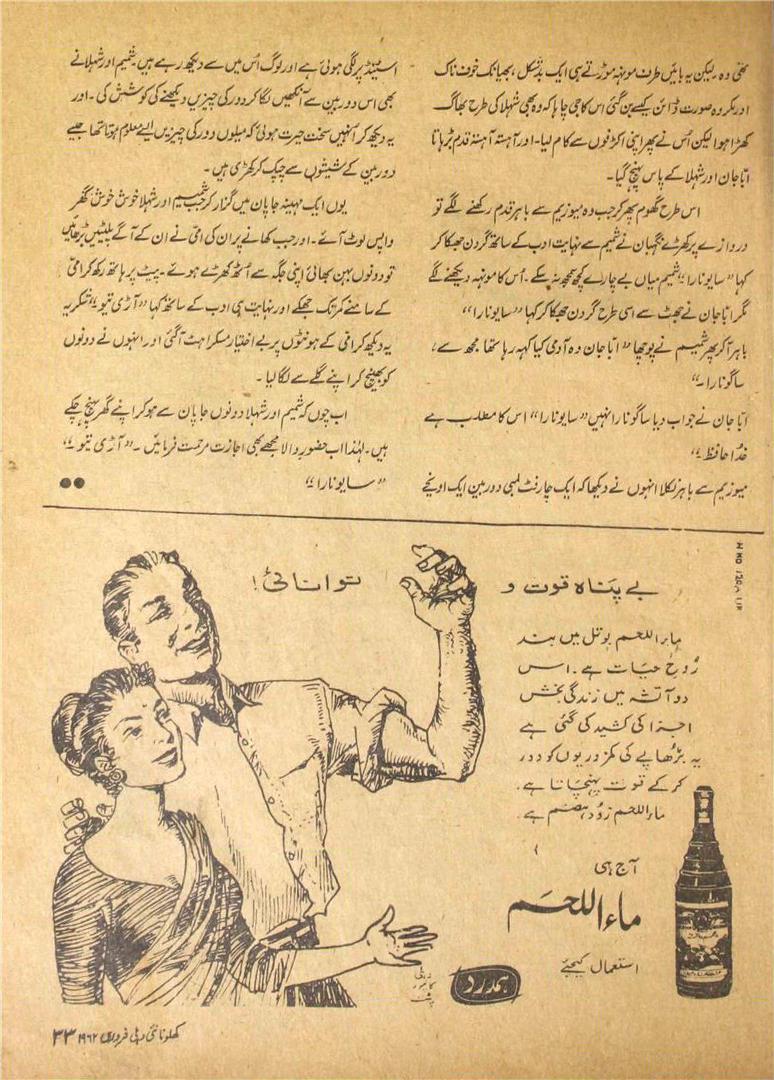 تھی وہ۔ لیکن یہ بائیں طرف مونہہ موڑتے ہی ایک بدشکل، بھیانک خوف ناک
اور مکروہ صورت ڈائن کیسے بن گئی اس کا جی چاہا کہ وہ بھی شہلا کی طرح بھاگ
کھڑا ہو لیکن اُس نے پھر اپنی اکڑفوں سے کام لیا۔ اور آہستہ آہستہ قدم بڑہاتا
ابّا جان اور شہلا کے پاس پہنچ گیا۔
اس طرح گھوم پھر کر جب وہ میوزیم سے باہر قدم رکھنے لگے تو
دروازے پر کھڑے نگہبان نے شمیم سے نہایت ادب کے ساتھ گردن جھکا کر
کہا "سایونارا" شمیم میاں بے چارے کچھ سمجھ نہ سکے۔ اُس کا مونہہ دیکھنے لگے
مگر ابّا جان نے جھٹ سے اسی طرح گردن جھکا کر کہا "سایونارا"
باہر آ کر پھر شمیم نے پوچھا "ابّا جان وہ آدمی کیا کہہ رہا تھا مجھ سے؛
ساگونارا۔"
ابّا جان نے جواب دیا ساگونارا نہیں "سایونارا" اس کا مطلب ہے
خُدا حافظ۔"
میوزیم سے باہر نکلا انہوں نے دیکھا کہ ایک چار فٹ لمبی دوربین ایک اونچے
اسٹینڈ پر لگی ہوئی ہے اور لوگ اُس میں سے دیکھ رہے ہیں۔ شمیم اور شہلا نے
بھی اس دوربین سے آنکھیں لگا کر دور کی چیزیں دیکھنے کی کوشش کی۔ اور
یہ دیکھ کر اُنہیں سخت حیرت ہوئی کہ میلوں دور کی چیزیں ایسے معلوم ہوتا تھا جیسے
دوربین کے شیشوں سے چپک کر کھڑی ہیں۔
یوں ایک مہینہ جاپان میں گزار کر جب شمیم اور شہلا خوش خوش گھر
واپس لوٹ آئے۔ اور جب کھانے پر ان کی امّی نے ان کے آگے پلیٹیں بڑھائیں
تو دونوں بہن بھائی اپنی جگہ سے اُٹھ کھڑے ہوئے۔ پیٹ پر ہاتھ رکھ کر امّی
کے سامنے کمر تک جھکے اور نہایت ہی ادب کے ساتھ کہا "آڑی تیو" شکریہ
یہ دیکھ کر امّی کے ہونٹوں پر بے اختیار مسکراہٹ آ گئی اور انہوں نے دونوں
کو بھینچ کر اپنے گلے سے لگا لیا۔
اب چوں کہ شمیم اور شہلا دونوں جاپان سے ہو کر اپنے گھر پہنچ چکے
ہیں۔ لہٰذا اب حضور والا مجھے بھی اجازت مرحمت فرمائیں۔ "آڑی تیو۔"
"سایونارا"
بے پناہ قوت و توانائی!
ماءاللحم بوتل میں بند
رُوحِ حیات ہے۔ اس
دوآتشہ میں زندگی بخش
اجزا کی کشید کی گئی ہے
یہ بڑھاپے کی کمزوریوں کو دور
کر کے قوت پہنچاتا ہے۔
ماءاللحم زُود ہضم ہے۔
آج ہی
ماءاللحم
استعمال کیجیے
ہمدرد
دہلی
کانپور
پٹنہ
کھلونا نئی دہلی فروری ۱۹۶۲ ۳۳